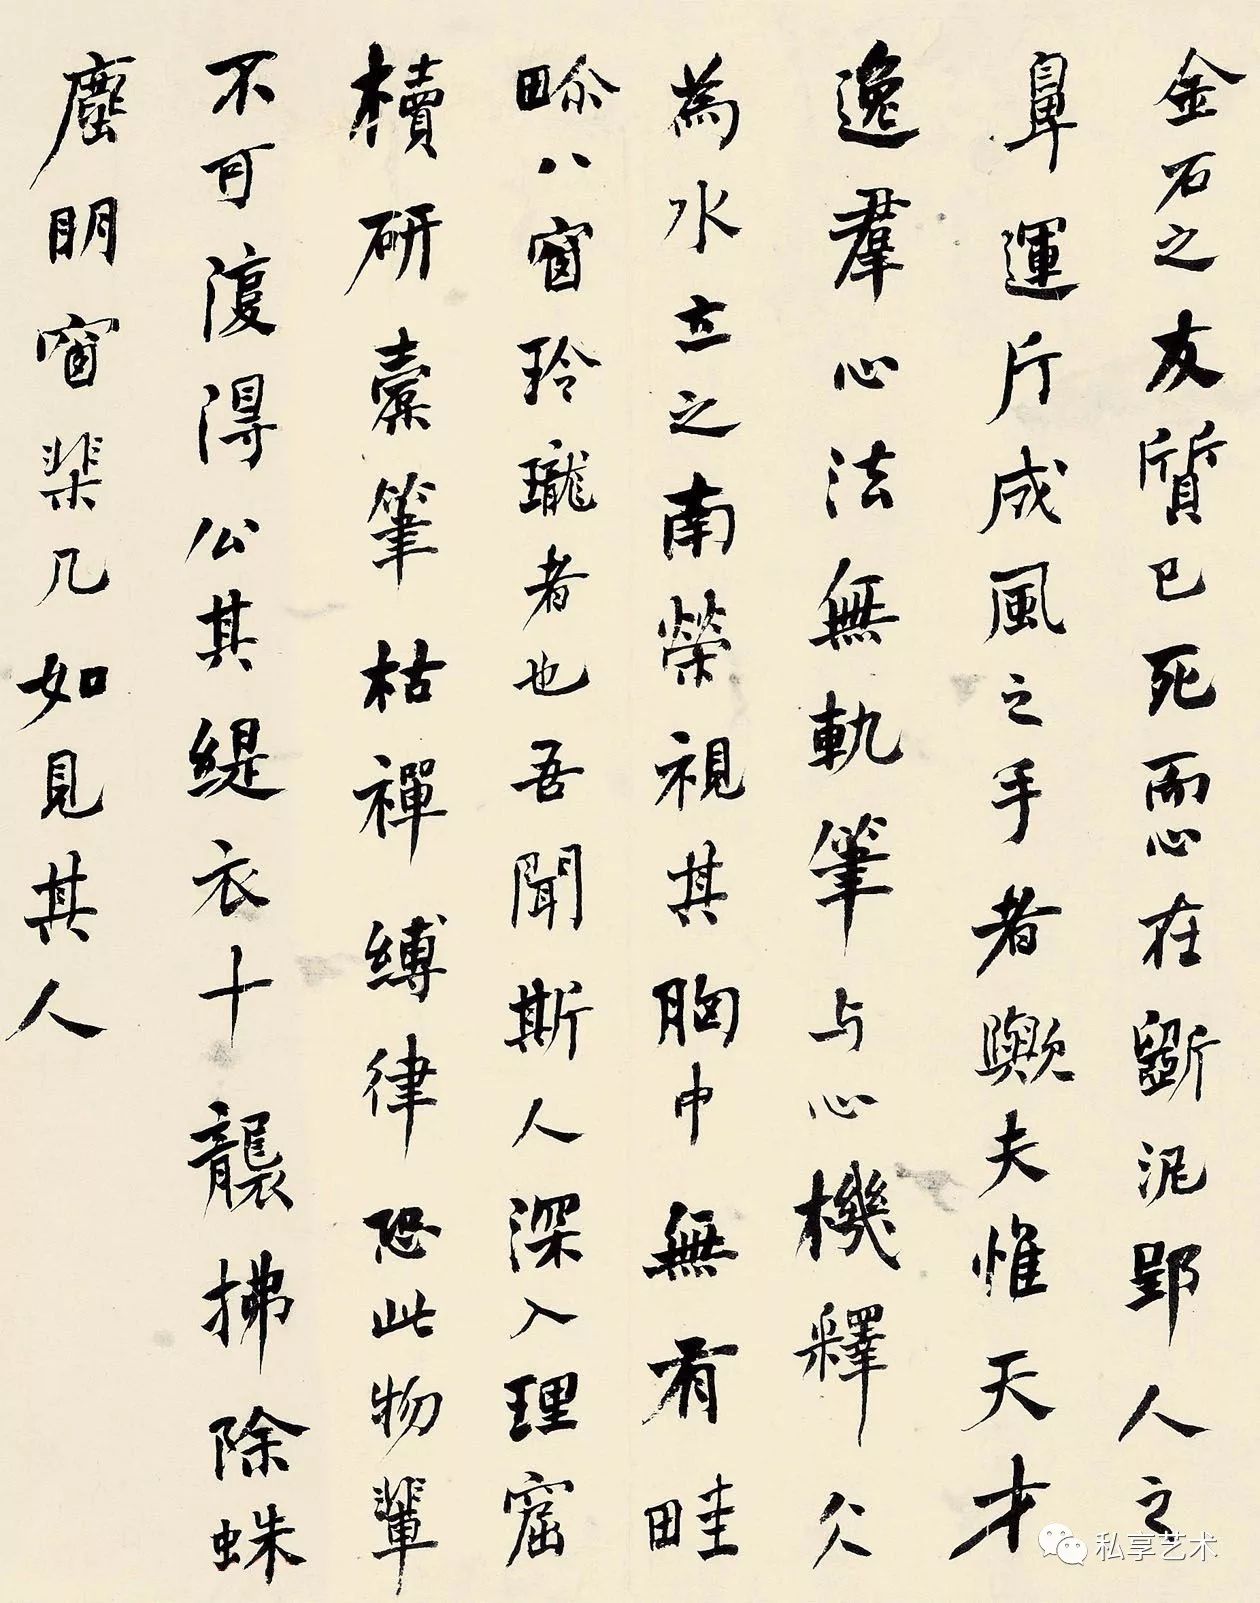 金石之友質已死而心在斲泥郢人之
鼻運斤成風之手者歟夫惟天才
逸羣心法無軌筆与心機釋仌
為水立之南榮視其胸中無有畦
畛八窗玲瓏者也吾聞斯人深入理窟
櫝研囊筆枯禪縛律恐此物輩
不可復得公其緹衣十襲拂除蛛
塵明窗棐几如見其人
私享艺术